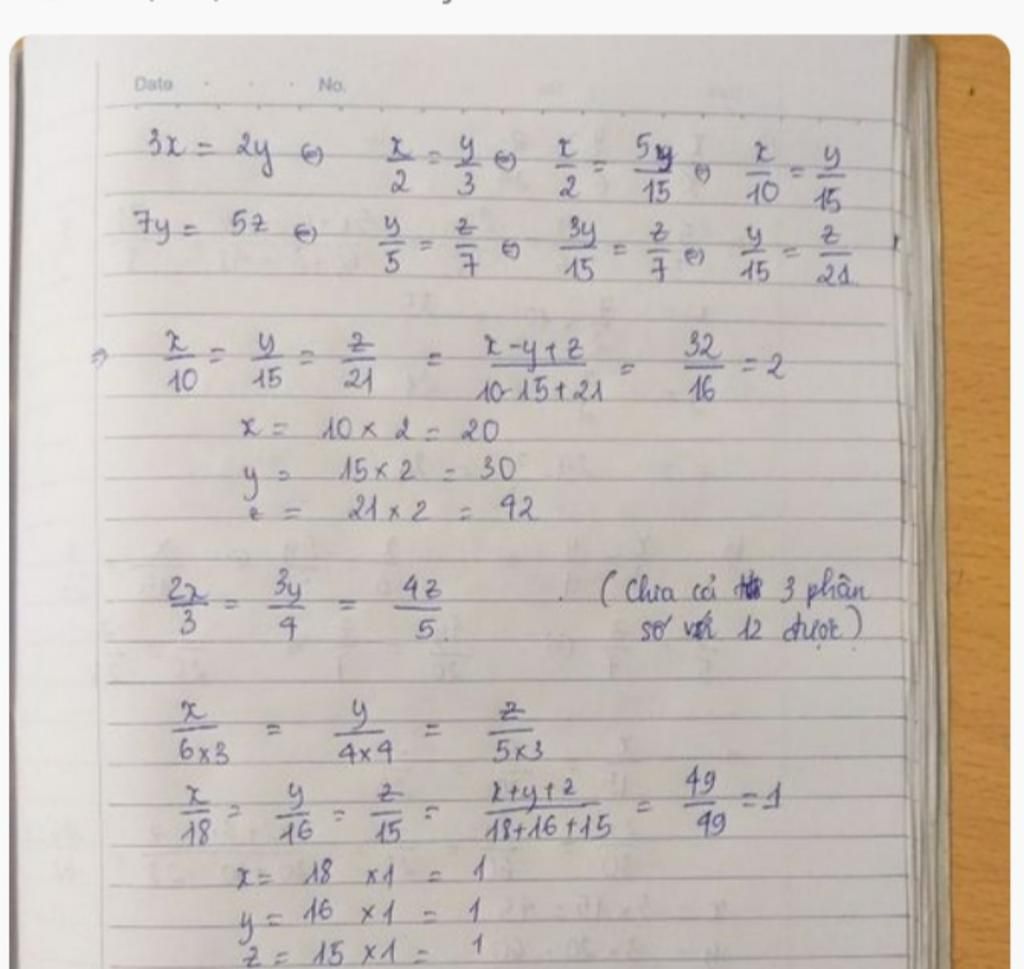 Date No.
3x = 2y ⇔ x/2 = y/3 ⇔ x/2 = 5y/15 ⇔ x/10 = y/15
7y = 5z ⇔ y/5 = z/7 ⇔ 3y/15 = z/7 ⇔ y/15 = z/21
⇒ x/10 = y/15 = z/21 = x-y+z/10-15+21 = 32/16 = 2
x = 10 × 2 = 20
y = 15 × 2 = 30
z = 21 × 2 = 42
2x/3 = 3y/4 = 4z/5 (Chia cả 3 phân
số với 12 được)
x/6×3 = y/4×4 = z/5×3
x/18 = y/16 = z/15 = x+y+z/18+16+15 = 49/49 = 1
x = 18 × 1 = 1
y = 16 × 1 = 1
z = 15 × 1 = 1